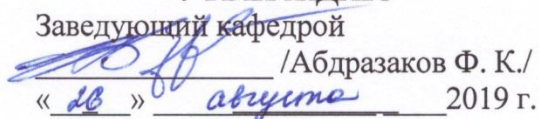 Заведующий кафедрой
/Абдразаков Ф. К./
«26» августа 2019 г.